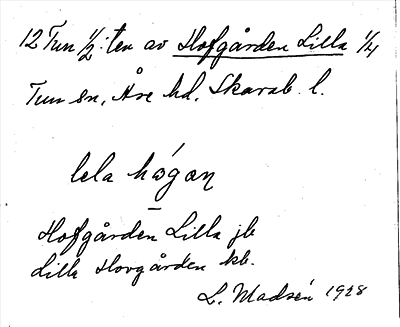 12 Tun 1/2:ten av Hofgården Lilla 1/4
Tun sn, Åse hd, Skarab. l.
lela hǿgan
Hofgården Lilla jb
Lilla Hovgården kb.
L. Madsén 1928